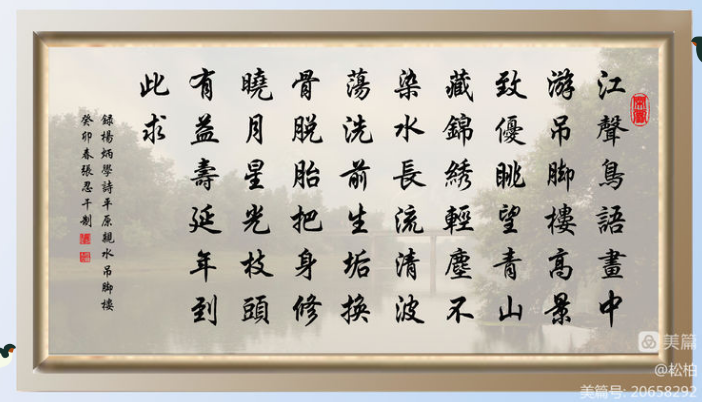 江聲鳥語畫中
游吊脚樓高景
致優眺望青山
藏錦綉輕塵不
染水長流清波
蕩洗前生垢換
骨脱胎把身修
曉月星光枝頭
有益壽延年到
此求
録楊炳學詩平原親水吊脚樓
癸卯春張忍干制
美篇
@松柏
美篇号: 20658292